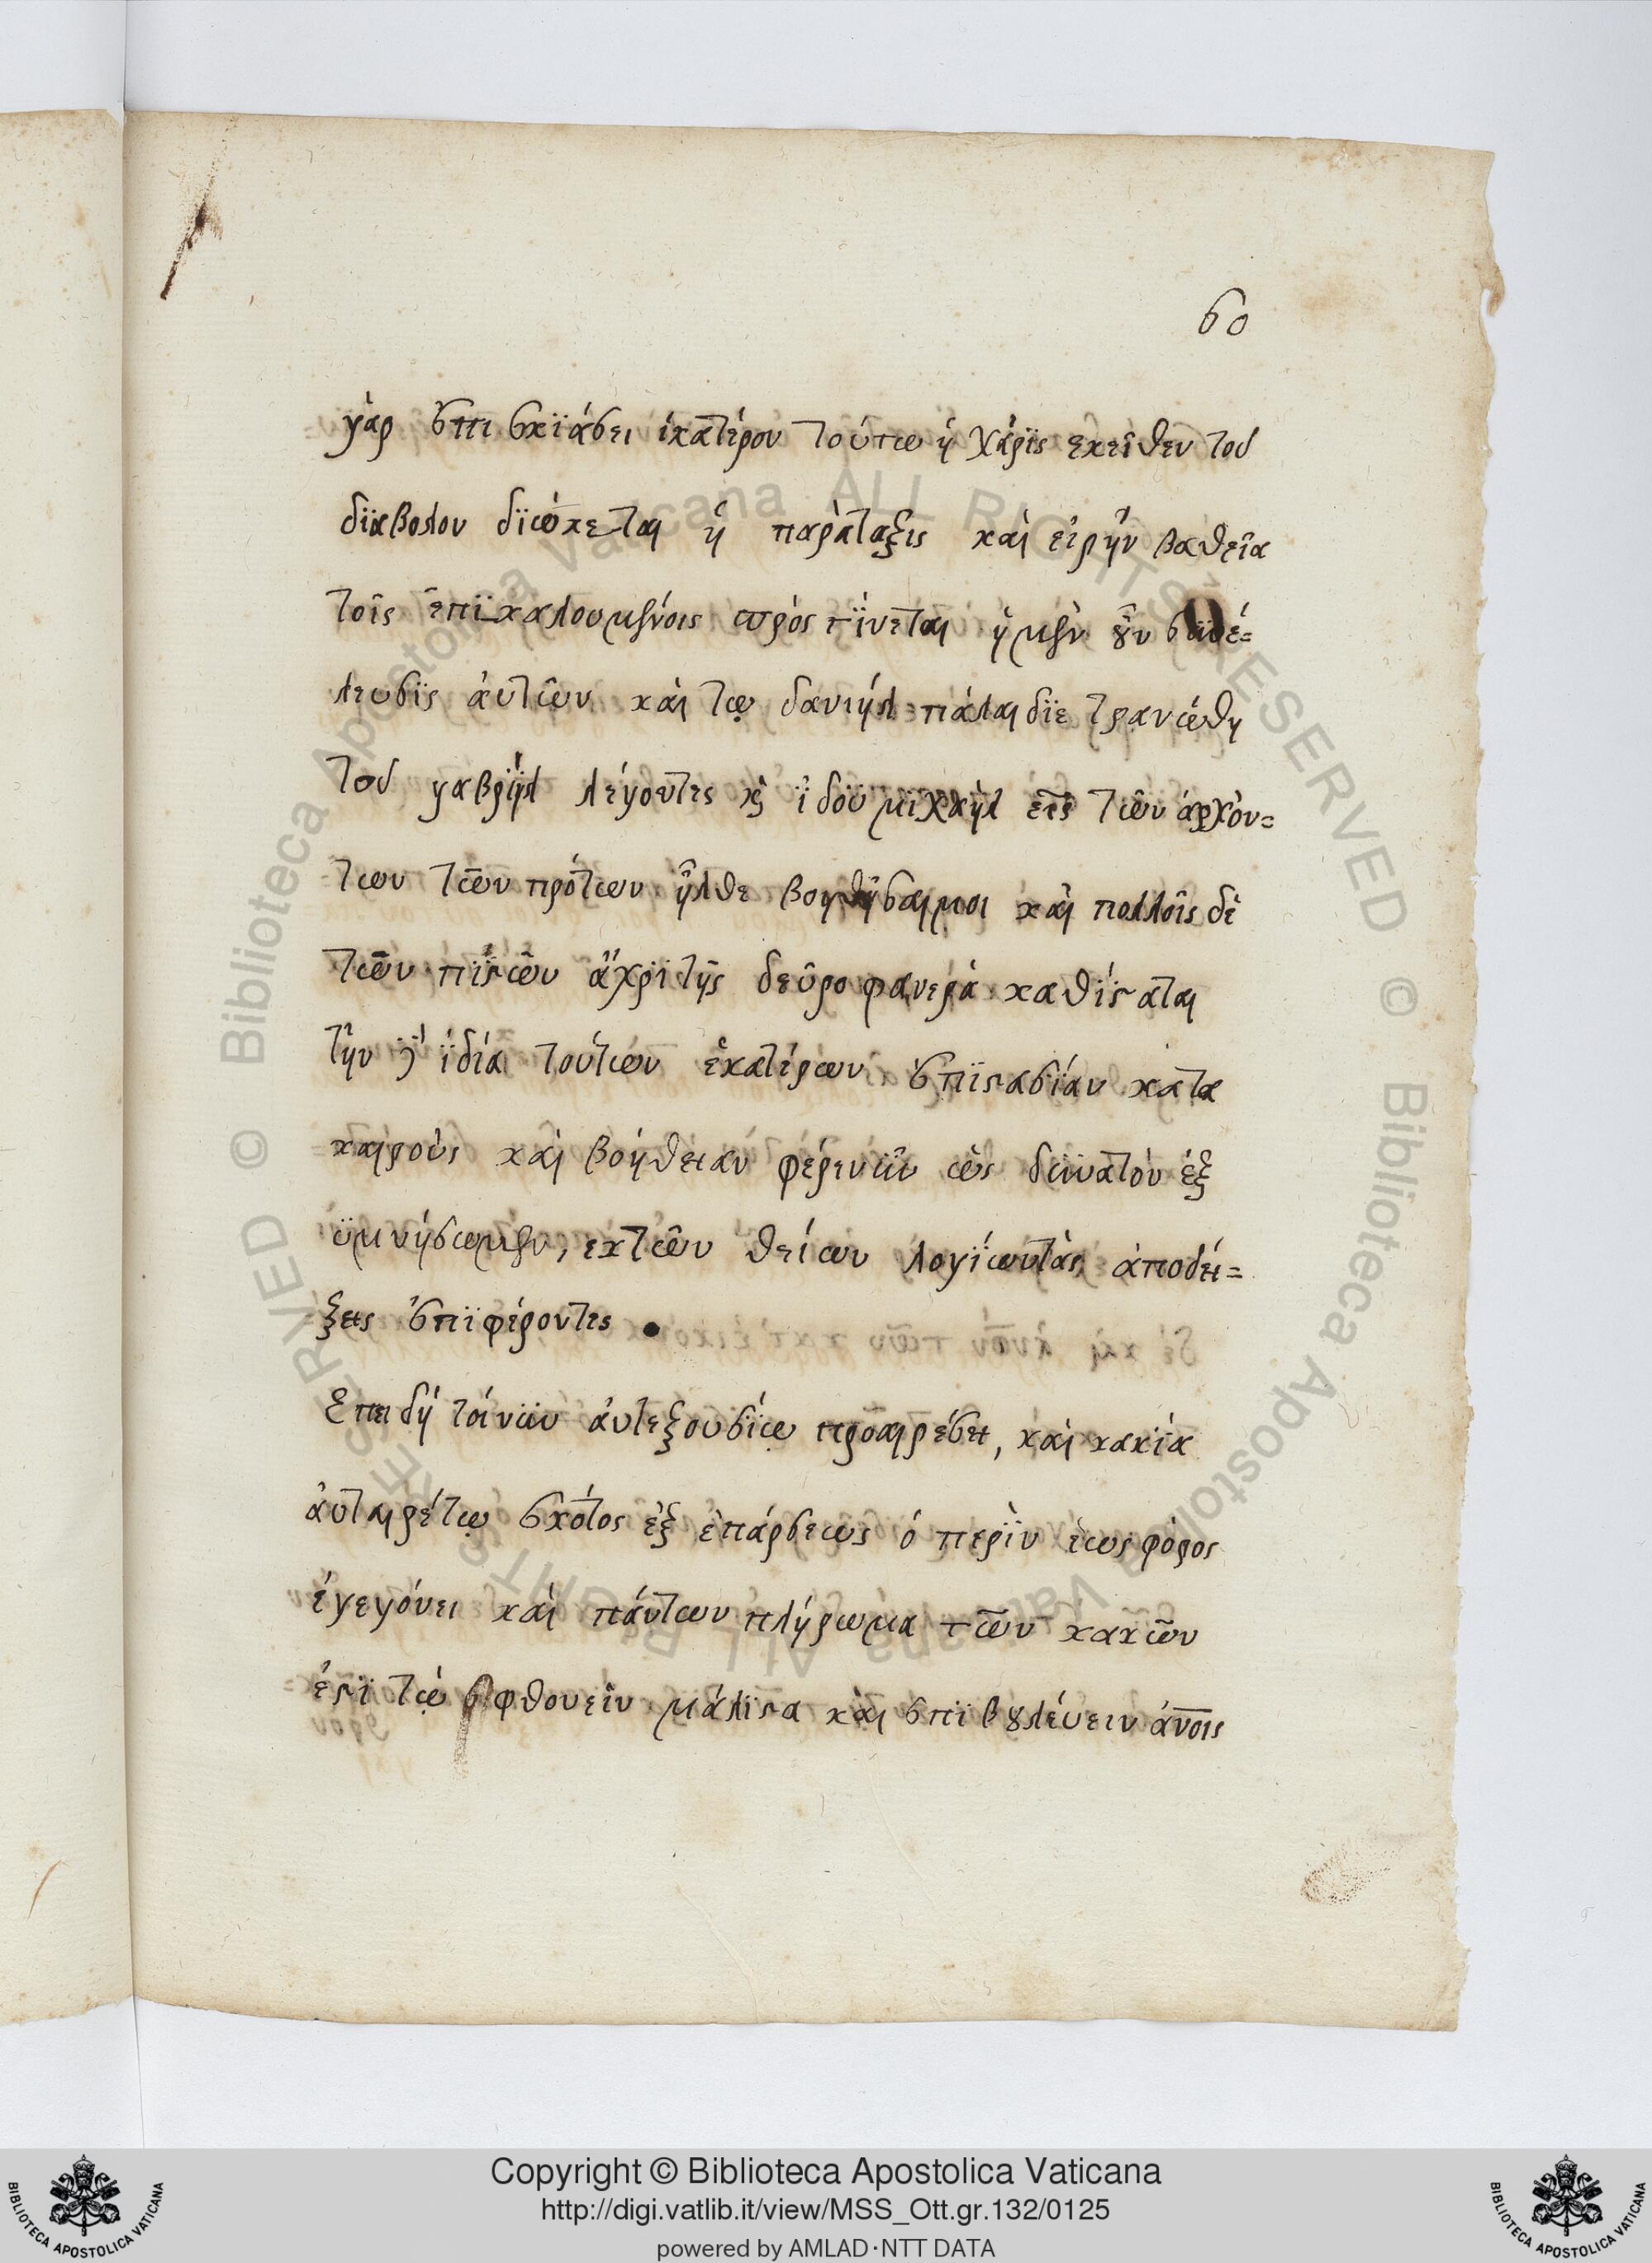 60
γὰρ ἐπισκϊάσει ἑκατέρου τούτω ἡ χάρϊς ἐκεῖθεν τοῦ
δϊαβολου δϊώκεται ἡ παρὰταξϊς καὶ εἰρήν βαθεῖα
τοῖς ἐπϊκαλουμένοις πρός γΐνεται ἡ μὲν οὖν συνέ=
λευσϊς ἀυτῶν καὶ τῳ δανιήλ πάλαι δϊετρανώθη
τοῦ γαβρϊήλ λέγοντες καὶ ϊδοὺ μϊχαὴλ εἷς τῶν ἀρχὸν=
των τῶν πρότων ἦλθε βοηθῆσαι μοι καὶ πολλοῖς δὲ
τῶν πϊστῶν ἄχρϊ τῆς δεῦρο φανερὰ καθίσταται
τὴν γ' ϊδία τούτων ἑκατέρων ἐπϊστασίαν κατα
καιροὺς καὶ βοήθειαν φέρε νῦν ὡς δυνατὸν ἐξ
ϋμνήσωμεν, εκ τῶν θείων λογΐων τὰς ἀποδεί=
ξεις ἐπϊφέροντες •
Επειδὴ τοίνυν ἀυτεξουσϊίω προαιρέσει, καὶ κακία
ἀυταιρέτω σκότος ἐξ ἐπάρσεως ὁ περϊν ἑωςφόρος
ἐγεγόνει καὶ πάντων πλήρωμα τῶν κακῶν
ἐστϊ τῷ φθονεῖν μάλϊστα καὶ ἐπϊβουλέυειν ἀνοις
Copyright © Biblioteca Apostolica Vaticana
http://digi.vatlib.it/view/MSS_Ott.gr.132/0125
powered by AMLAD·NTT DATA
BIBLIOTECA APOSTOLICA VATICANA
BIBLIOTECA APOSTOLICA VATICANA